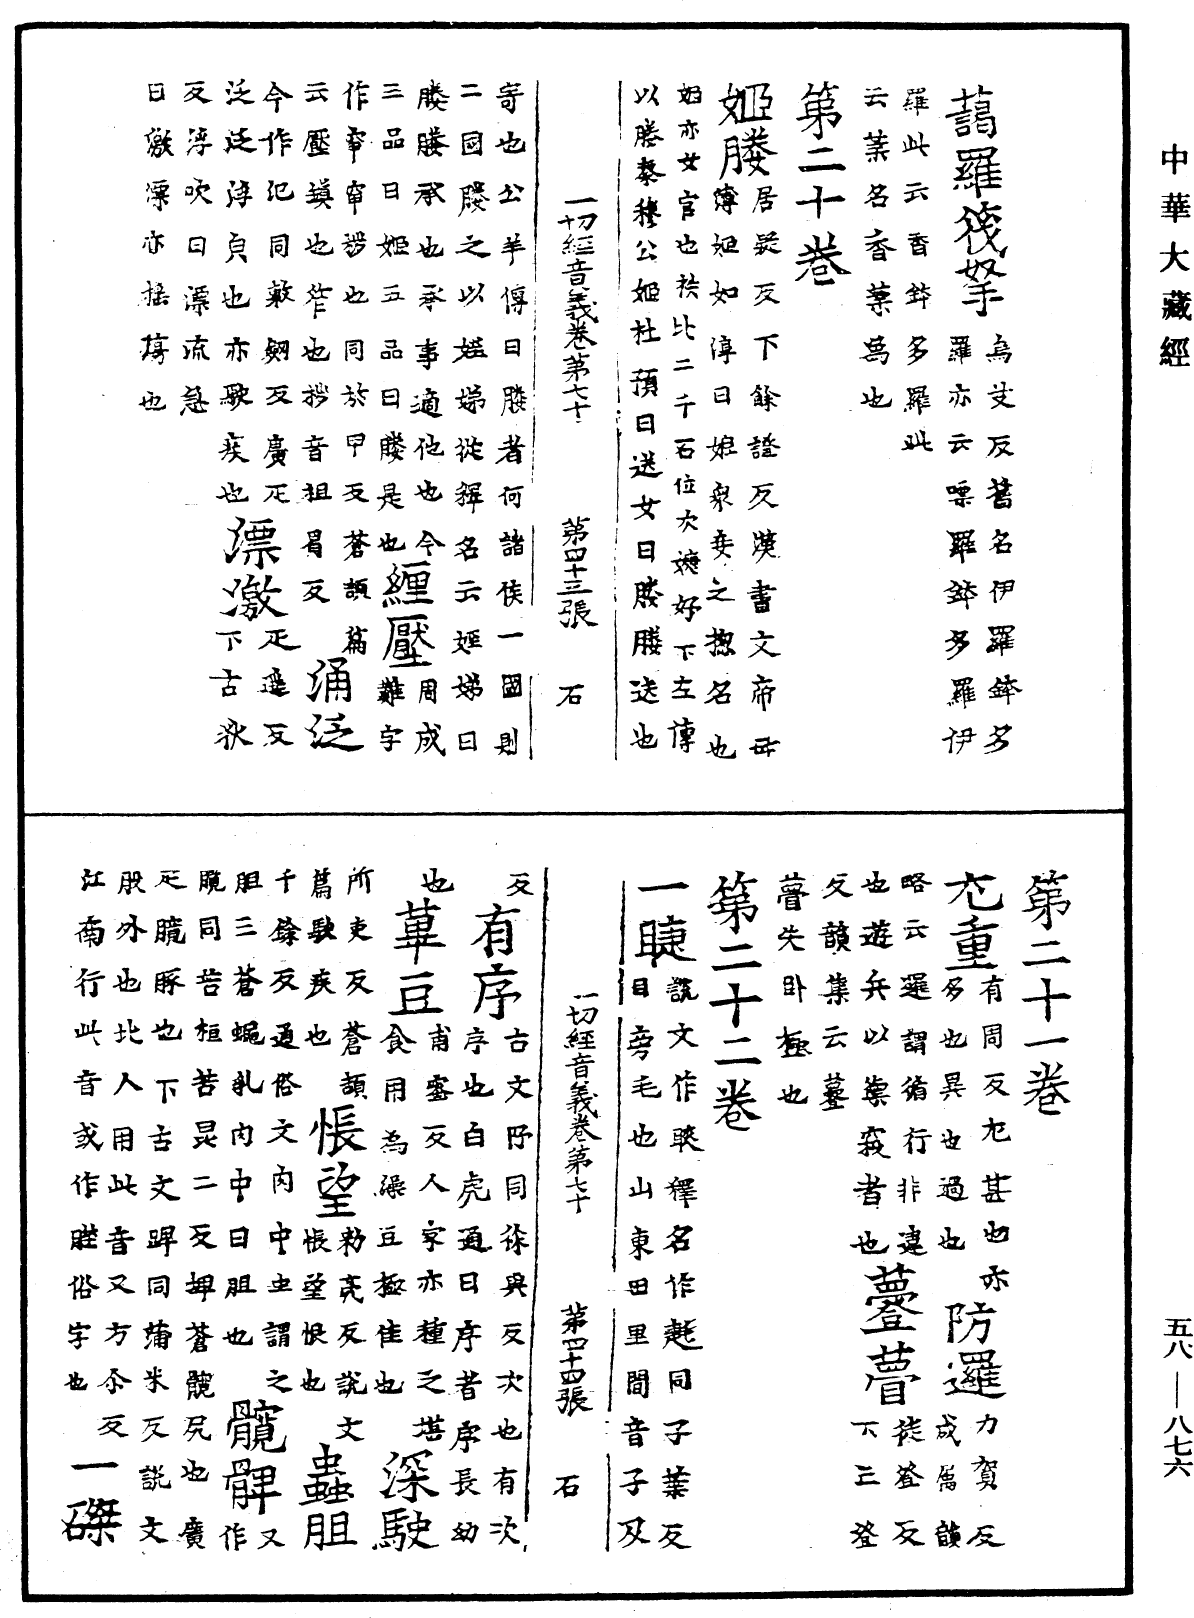 中華大藏經
藹羅筏拏烏艾反舊名伊羅鉢多
羅亦云嘌羅鉢多羅伊
羅此云香鉢多羅此
云葉名香葉爲也
第二十卷
姬媵居疑反下餘證反漢書文帝母
薄姬如淳曰姬衆妾之㧾名也
姬亦女官也袟比二千石位次婕妤下左傳
以媵秦穆公姬杜預曰送女曰媵媵送也
一切經音義卷第七十 第四十三張 石
寄也公羊傳曰媵者何諸侯一國則
二國媵之以姪娣從釋名云姪娣曰
媵媵承也承事適他也今
三品曰姬五品曰媵是也纏壓周成
難字
作窄窄拶也同於甲反蒼頡篇
云壓鎭也笮也拶音祖曷反涌泛
今作氾同敷劒反廣疋
泛泛浮皃也亦駛疾也漂激疋遙反
下古狄
反浮吹曰漂流急
曰激漂亦搖蕩也
第二十一卷
尤重有周反尤甚也亦
多也異也過也防邏力賀反
成厲韻
略云邏謂循行非違
也遊兵以禦寇者也薹瞢徒登反
下三登
反韻集云薹
瞢失卧極也
第二十二卷
一睫說文作䀹釋名作𥇒同子葉反
目旁毛也山東田里間音子及
一切經音義卷第七十 第四十四張 石
反
也有序古文㕂同徐與反次也有次
序也白虎通曰序者序長幼
蓽豆甫蜜反人家亦種之堪
食用為澡豆極佳也深駛
所吏反蒼頡
篇駛疾也悵望勑亮反說文
悵望恨也蟲胆
千餘反通俗文肉中虫謂之
胆三蒼蠅乳肉中曰胆也髖髀又
作
臗同苦桓苦昆二反埤蒼髖尻也廣
疋臗豚也下古文踔同蒲米反說文
股外也北人用此音又方尒反
江南行此音或作䏶俗字也一磔
五八——八七六